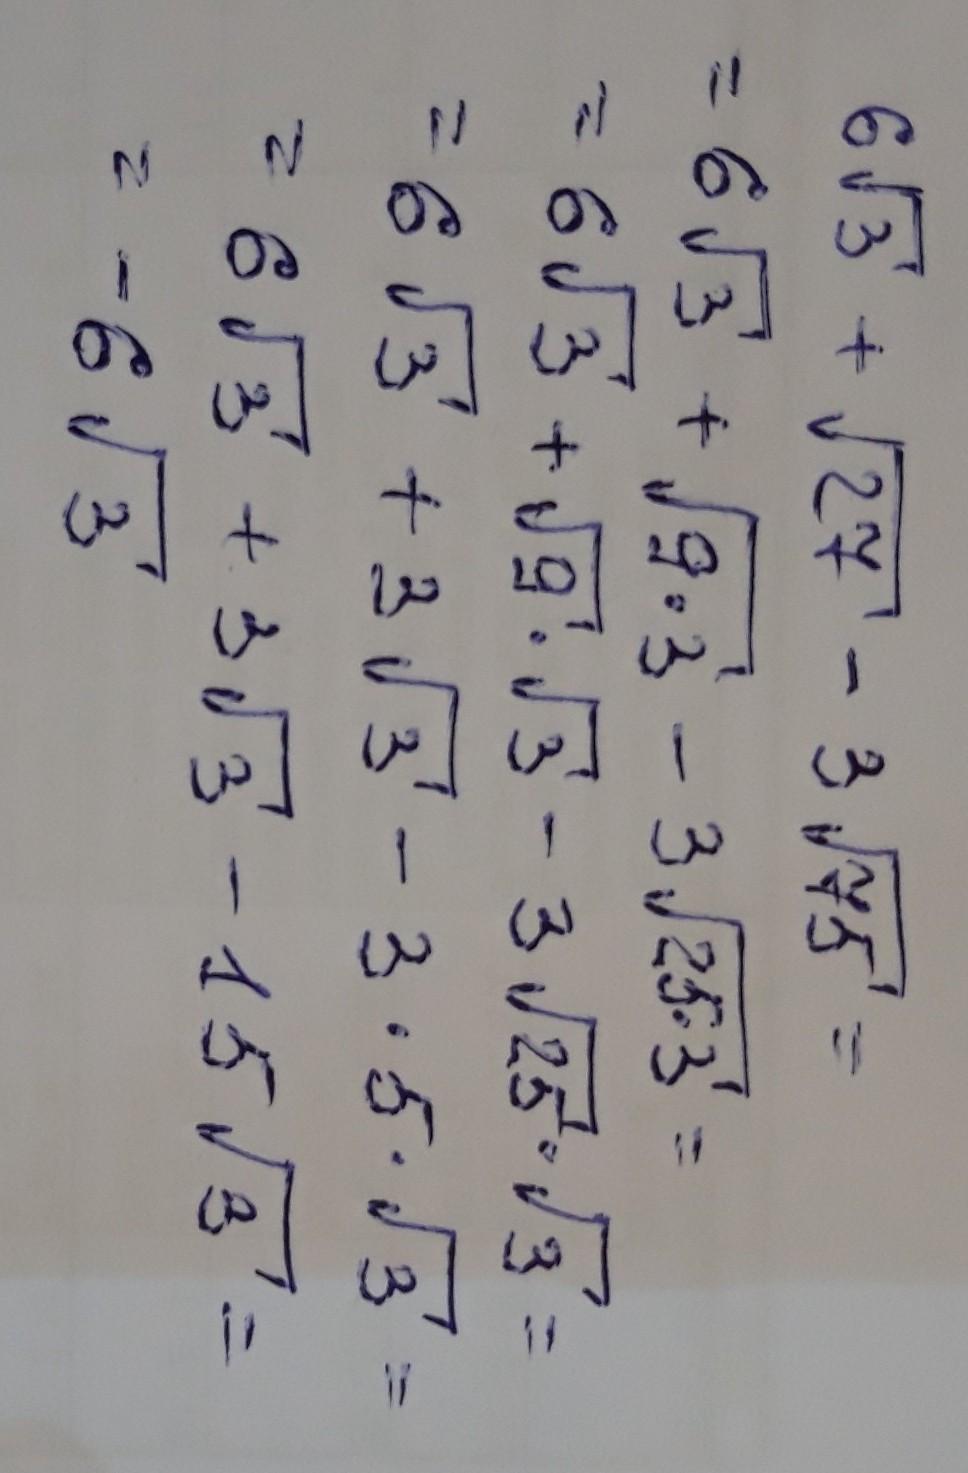 6√3 + √27 - 3√75 =
= 6√3 + √9·3 - 3√25·3 =
= 6√3 + √9 · √3 - 3√25 · √3 =
= 6√3 + 3√3 - 3 · 5 · √3 =
= 6√3 + 3√3 - 15√3 =
= - 6√3